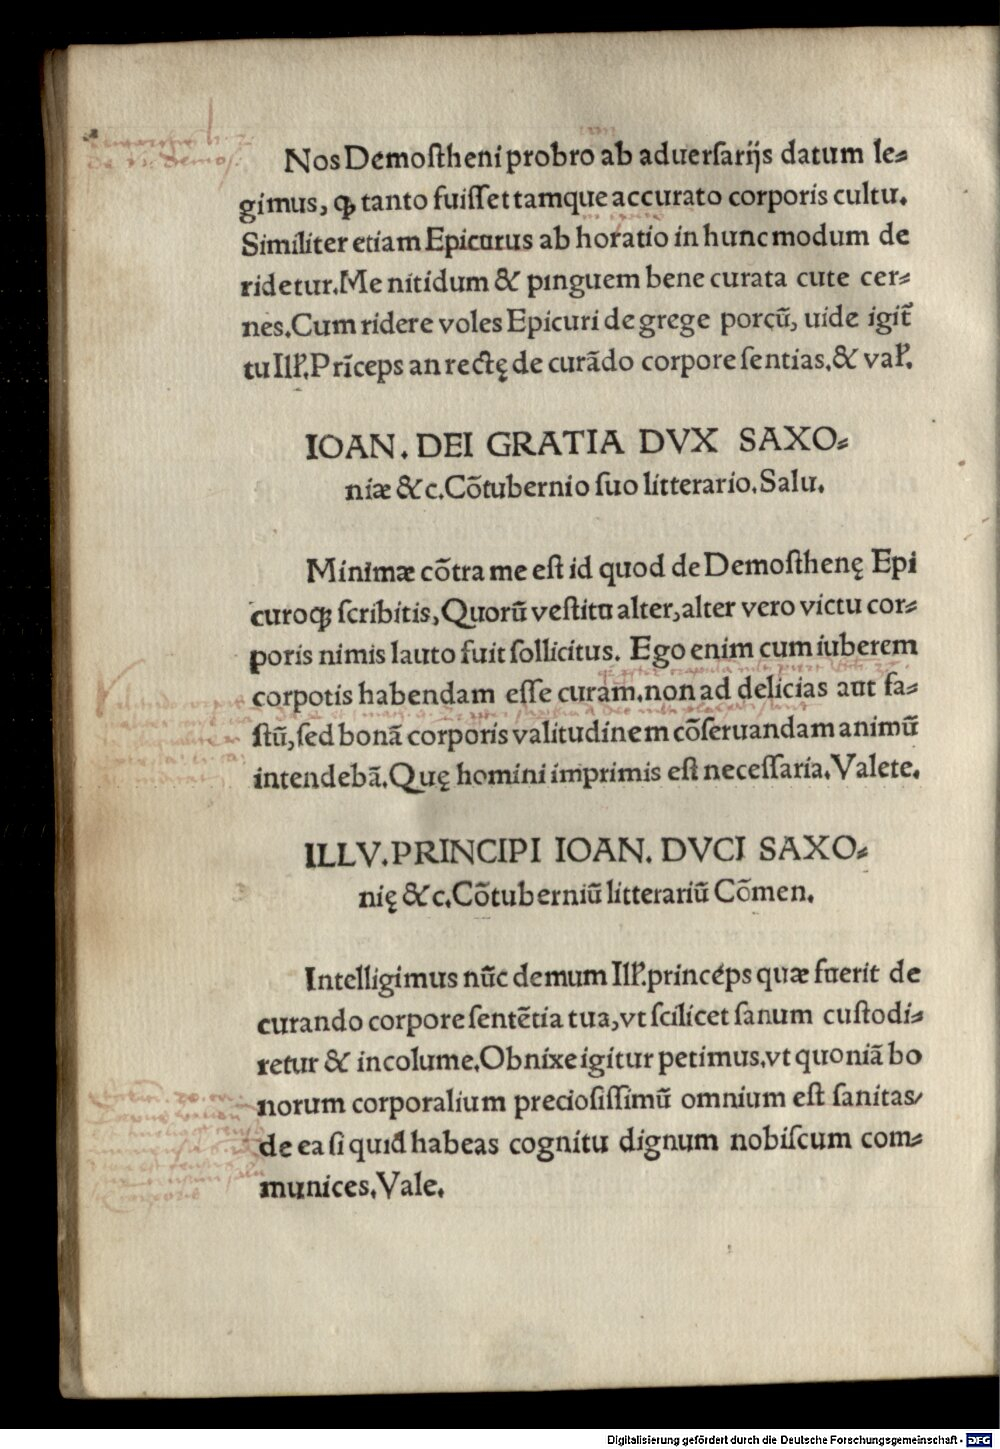 Nos Demoſtheni probro ab aduerſarijs datum le⸗
gimus, ꝙ tanto fuiſſet tamque accurato corporis cultu.
Similiter etiam Epicurus ab horatio in hunc modum de
ridetur. Me nitidum & pinguem bene curata cute cer⸗
nes. Cum ridere voles Epicuri de grege porcū, uide igit̃
tu Ill̃. Prīceps an rectę de curādo corpore ſentias. & val̃.
IOAN. DEI GRATIA DVX SAXO⸗
niæ &c. Cōtubernio ſuo litterario. Salu.
Minimæ cōtra me eſt id quod de Demoſthenę Epi
curoqꝫ ſcribitis, Quorū veſtitu alter, alter vero victu cor⸗
poris nimis lauto fuit ſollicitus. Ego enim cum iuberem
corpotis habendam eſſe curam. non ad delicias aut fa⸗
ſtū, ſed bonā corporis valitudinem cōſeruandam animū
intendebā. Quę homini imprimis eſt neceſſaria. Valete.
ILLV. PRINCIPI IOAN. DVCI SAXO⸗
nię &c. Cōtuberniū litterariū Cōmen.
Intelligimus nūc demum Ill̃. princéps quæ fuerit de
curando corpore ſentētia tua, vt ſcilicet ſanum cuſtodi⸗
retur & incolume. Obnixe igitur petimus. vt quoniā bo
norum corporalium precioſiſſimū omnium eſt ſanitas/
de ea ſi quid habeas cognitu dignum nobiſcum com⸗
munices. Vale.
Digitalisierung gefördert durch die Deutsche Forschungsgemeinschaft - DFG